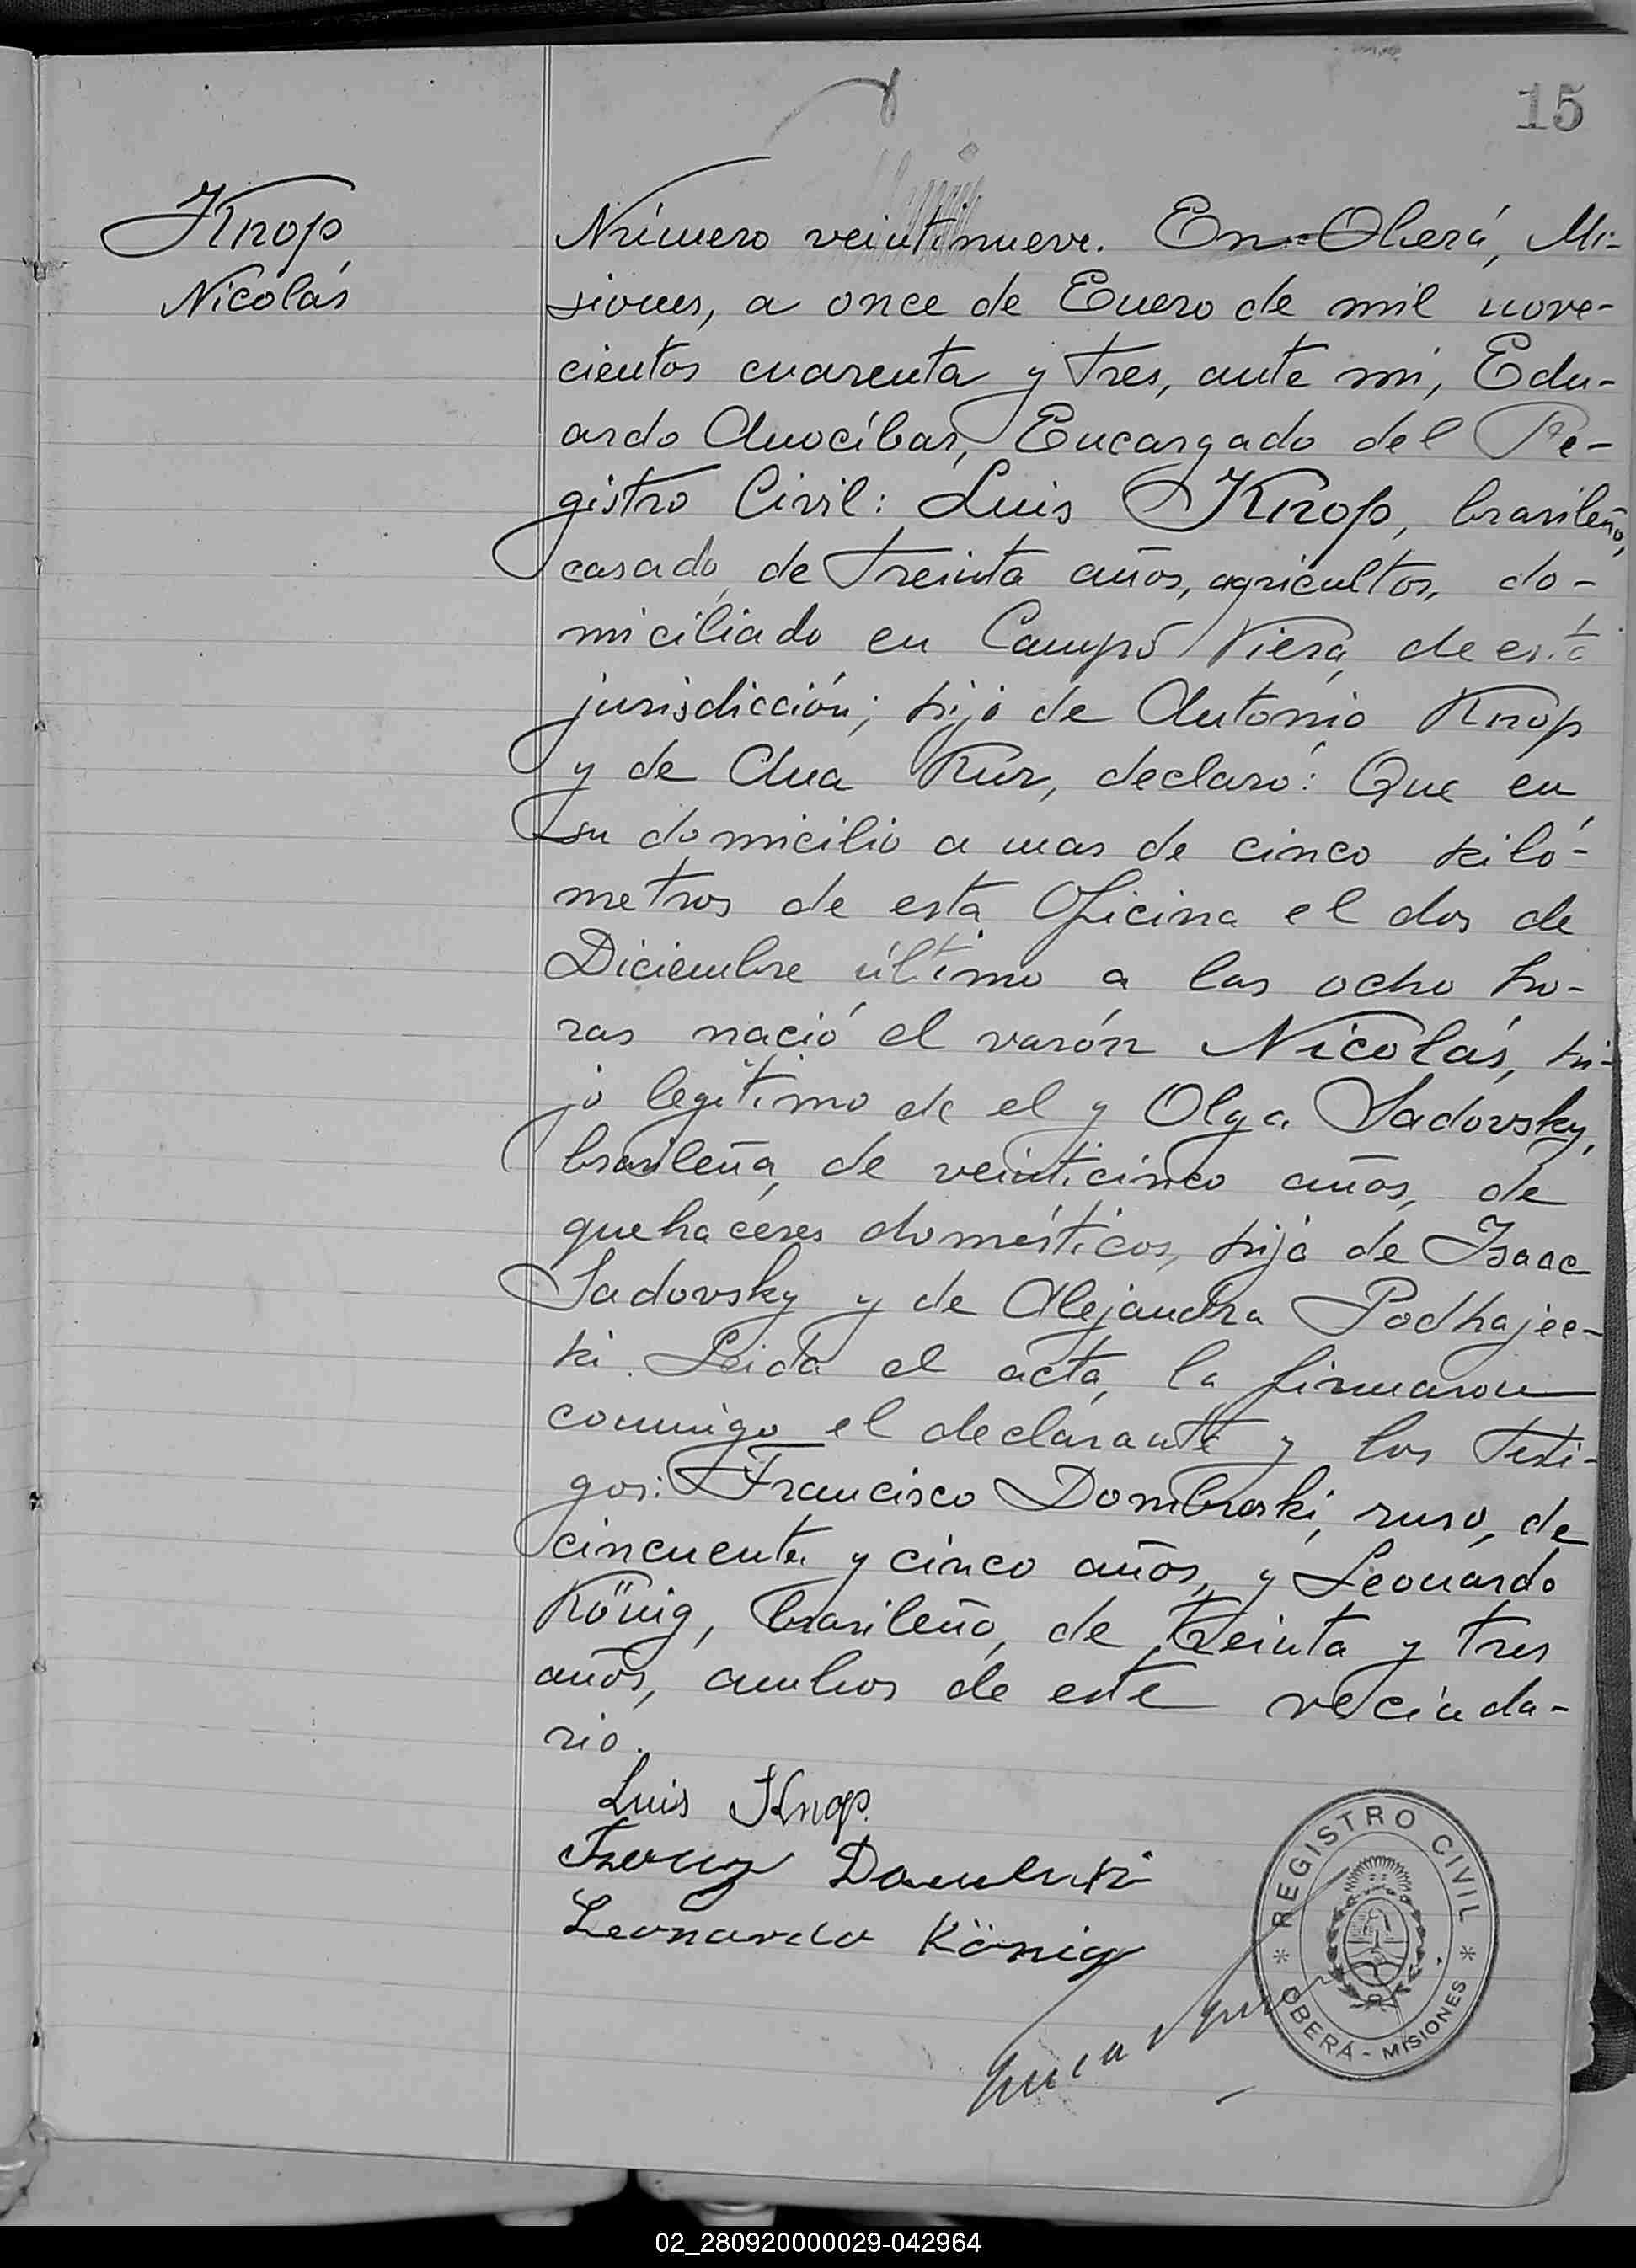 15
Knop
Nicolás
Número veintinueve. En Oberá, Mi-
siones, a once de Enero de mil nove-
cientos cuarenta y tres, ante mi, Edu-
ardo Anocíbar, Encargado del Re-
gistro Civil: Luis Knop, brasileño,
casado, de treinta años, agricultor, do-
miciliado en Campo Viera, de esta
jurisdicción; hijo de Antonio Knop
y de Ana Kur, declaró: Que en
su domicilio a mas de cinco kiló-
metros de esta Oficina el dos de
Diciembre último a las ocho ho-
ras nació el varón Nicolás, hi-
jo legítimo de el y Olga Sadovsky,
brasileña, de veinticinco años, de
quehaceres domésticos, hija de Isaac
Sadovsky y de Alejandra Podhajec-
ki. Leida el acta, la firmaron
conmigo el declarante y los testi-
gos: Francisco Dombroski, ruso, de
cincuenta y cinco años, y Leonardo
König, brasileño, de treinta y tres
años, ambos de este vecinda-
rio.
Luis Knop.
Leonardo König
REGISTRO CIVIL
OBERÁ - MISIONES
02_280920000029-042964